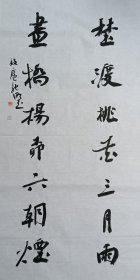 埜渡桃花三月雨
畫橋楊柳六朝煙